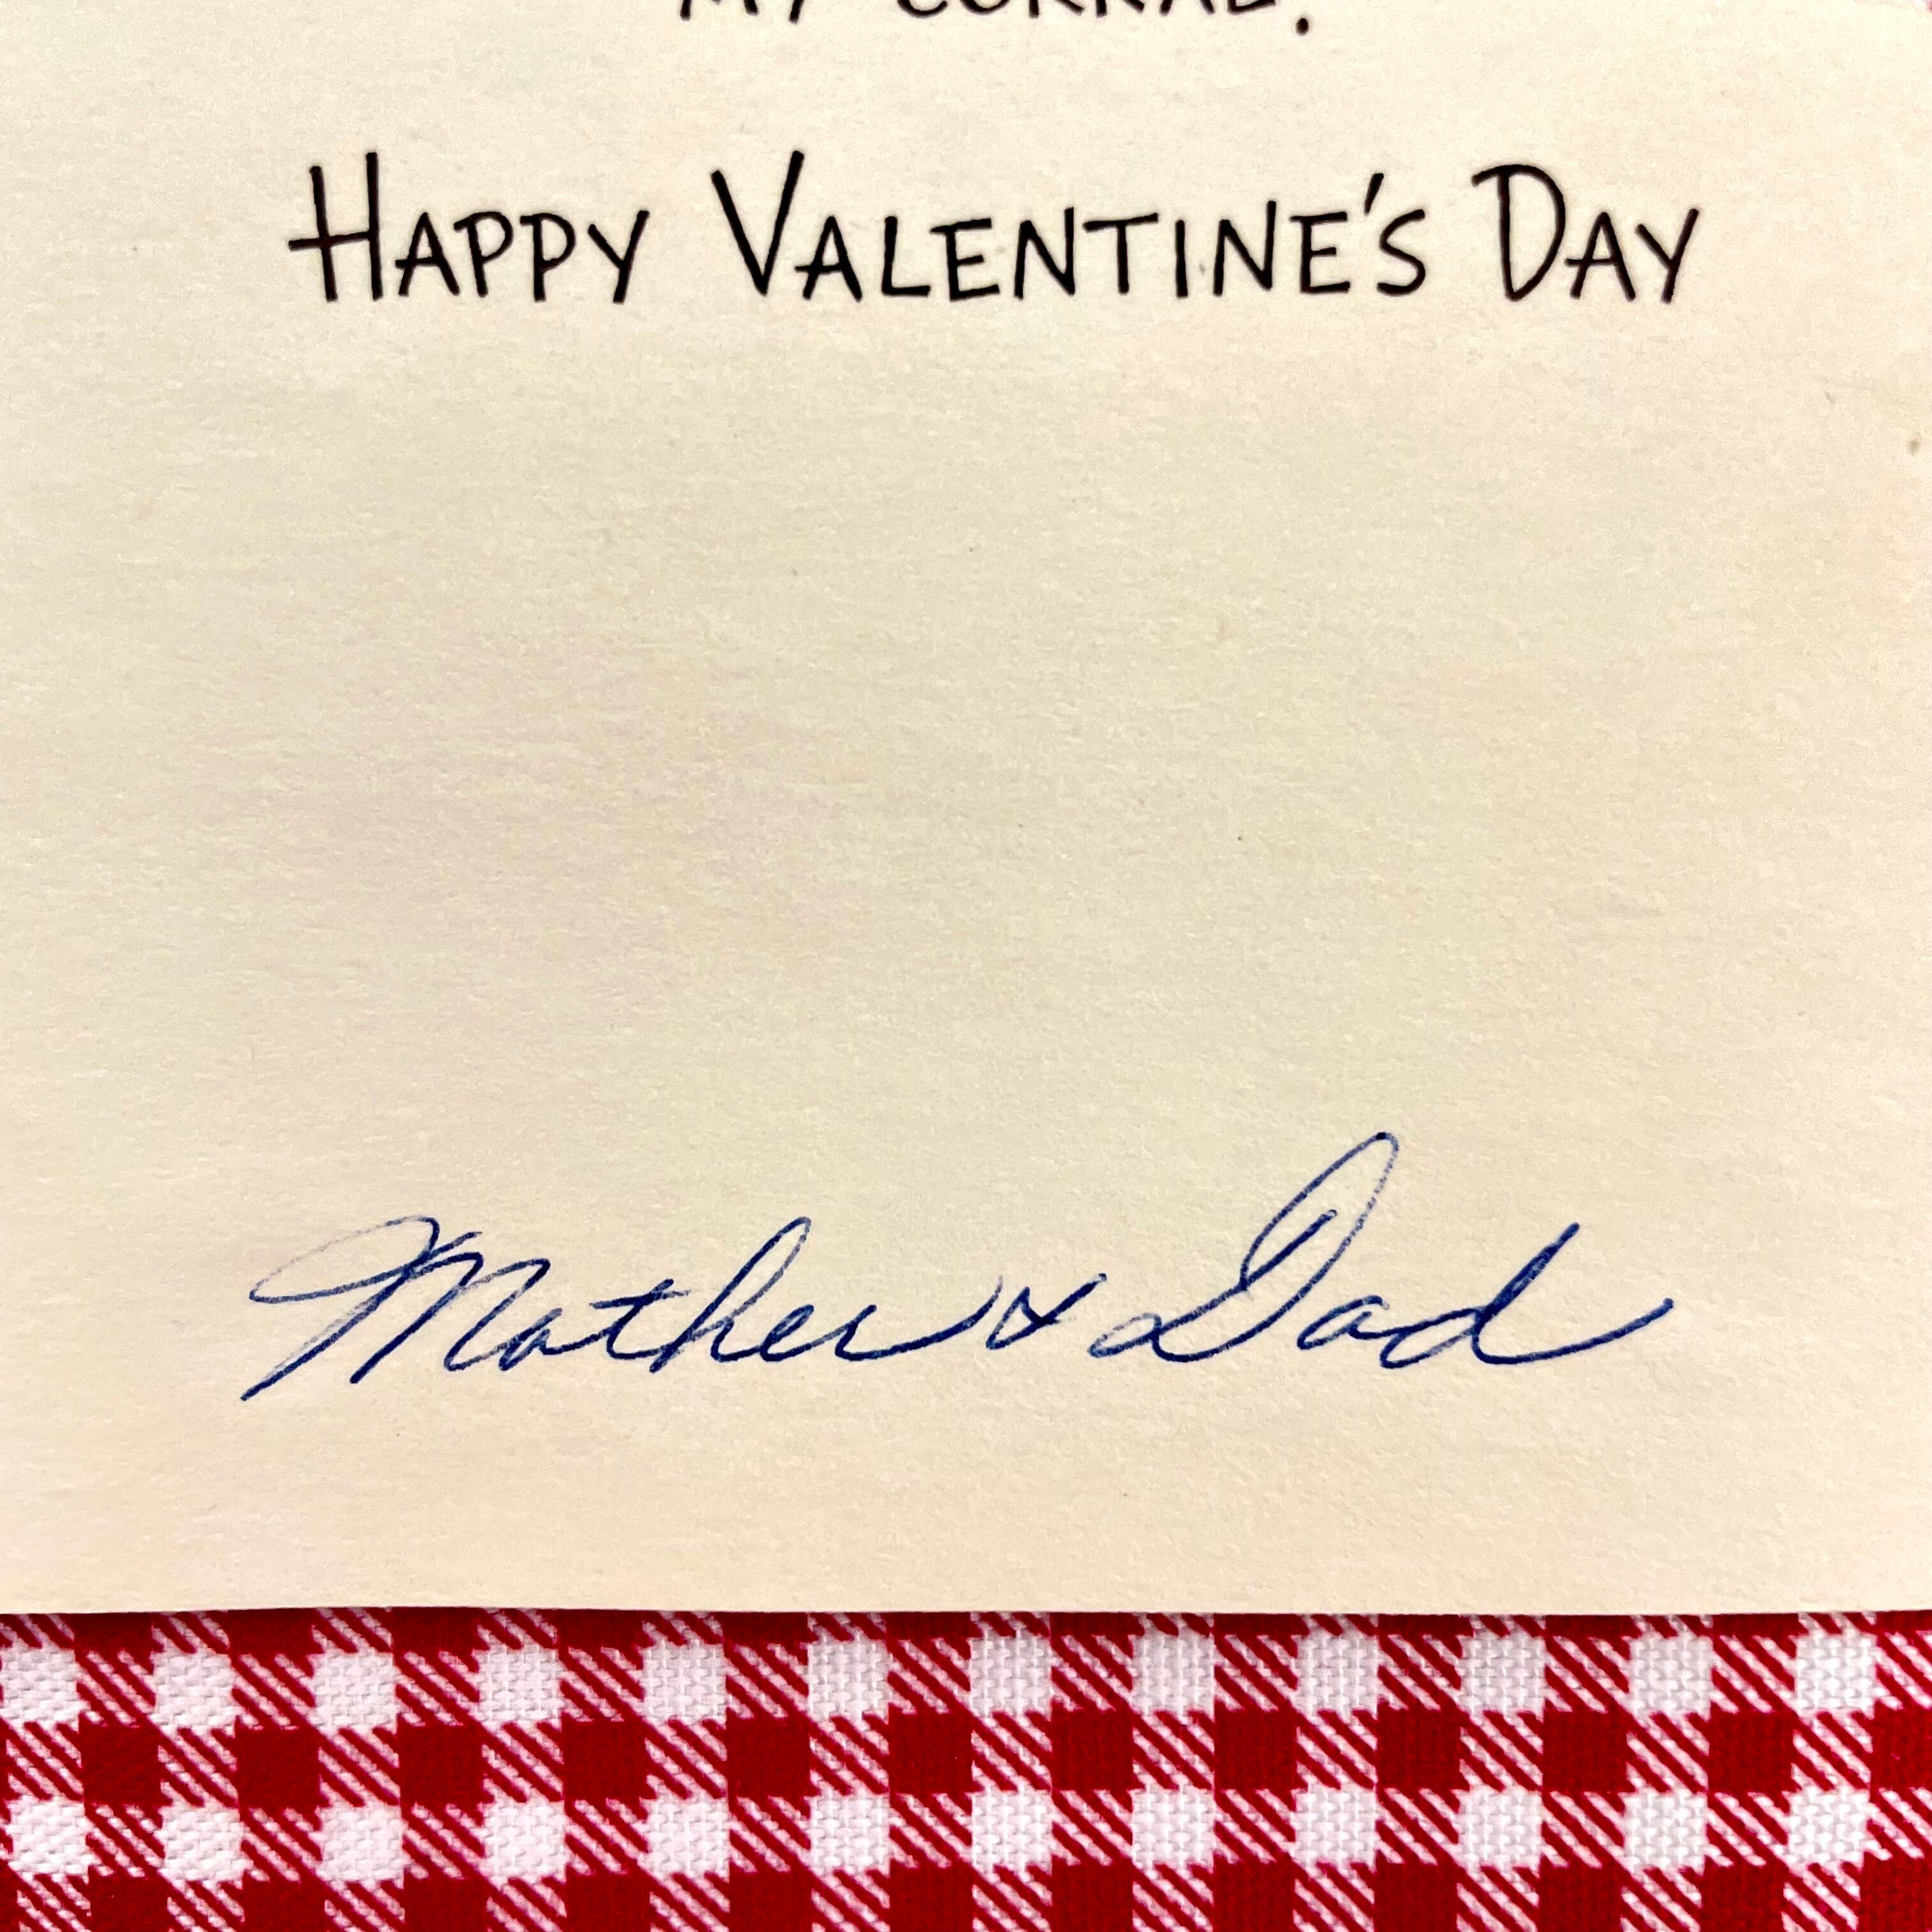 MY CORRAL.
HAPPY VALENTINE'S DAY
Mother & Dad